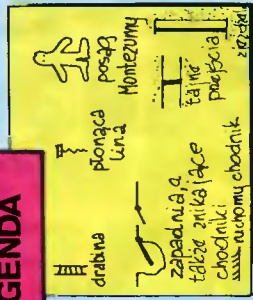 LEGENDA
drabina
płonąca
lina
posąg
Montezumy
zapadnia, a
także znikające
chodniki
ruchomy chodnik
tajne
przejścia